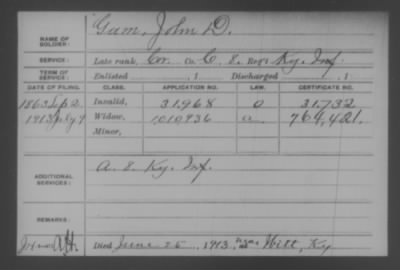 NAME OF SOLDIER: Gum, John D.
SERVICE: Late rank, Co. C, 8 Reg't Ky. Inf.
TERM OF SERVICE: Enlisted , 1 Discharged , 1
DATE OF FILING. CLASS. APPLICATION NO. LAW. CERTIFICATE NO.
1863 Sep 2 Invalid, 31,968 31,732
1913 July 9 Widow, 1,010,936 764,421.
Minor,
ADDITIONAL SERVICES: A. 8. Ky. Inf.
REMARKS:
Died June 25, 1913, Witt, Ky